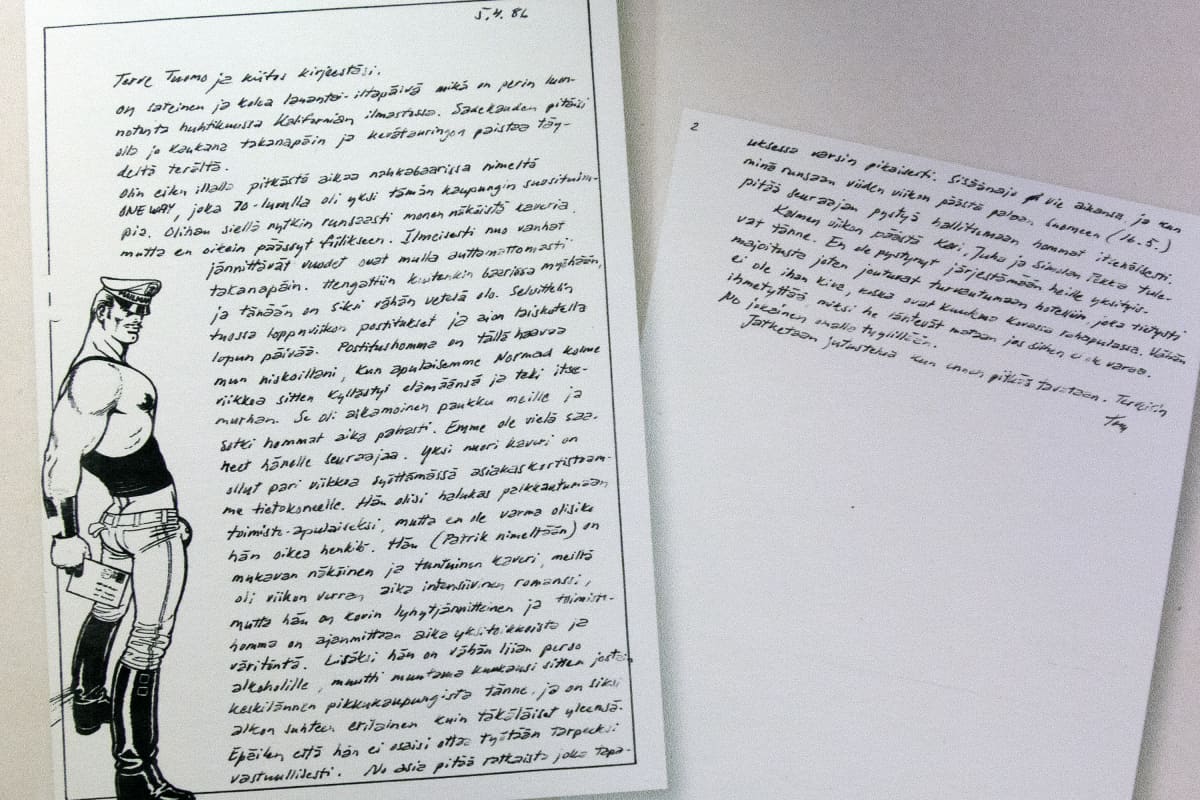 5.4.86
Terve Tuomo ja kiitos kirjeestäsi.
On sateinen ja kolea lauantai-iltapäivä mikä on perin luon-
notonta huhtikuussa Kalifornian ilmastossa. Sadekauden pitäisi
olla jo kaukana takanapäin ja kevätauringon paistaa täy-
deltä terältä.
Olin eilen illalla pitkästä aikaa nahkabaarissa nimeltä
ONE WAY, joka 70-luvulla oli yksi tämän kaupungin suosituim-
pia. Olihan siellä nytkin runsaasti monen näköistä kaveria
mutta en oikein päässyt fiilikseen. Ilmeisesti nuo vanhat
jännittävät vuodet ovat mulla auttamattomasti
takanapäin. Hengattiin kuitenkin baarissa myöhään,
ja tänään on siksi vähän vetelä olo. Selvittelin
tuossa loppuviikon postitukset ja aion laiskotella
lopun päivää. Postitushomma on tällä haavaa
mun niskoillani, kun apulaisemme Normad kolme
viikkoa sitten kyllästyi elämäänsä ja teki itse-
murhan. Se oli aikamoinen paukku meille ja
sotki hommat aika pahasti. Emme ole vielä saa-
neet hänelle seuraajaa. Yksi nuori kaveri on
ollut pari viikkoa syöttämässä asiakaskortistoam-
me tietokoneelle. Hän olisi halukas palkkautumaan
toimisto-apulaiseksi, mutta en ole varma olisiko
hän oikea henkilö. Hän (Patrik nimeltään) on
mukavan näköinen ja tuntuinen kaveri, meillä
oli viikon verran aika intensiivinen romanssi,
mutta hän on kovin lyhytjännitteinen ja toimisto-
homma on ajanmittaan aika yksitoikkoista ja
väritöntä. Lisäksi hän on vähän liian perso
alkoholille, muutti muutama kuukausi sitten jostain
keskilännen pikkukaupungista tänne, ja on siksi
alkon suhteen erilainen kuin täkäläiset yleensä.
Epäilen että hän ei osaisi ottaa työtään tarpeeksi
vastuullisesti. No asia pitää ratkaista joka tapa-
2
uksessa varsin pikaisesti. Sisäänajo vie aikansa, ja kun
minä runsaan viiden viikon päästä palaan Suomeen (16.5.)
pitää seuraajan pystyä hallitsemaan hommat itsenäisesti.
Kolmen viikon päästä Keri, Juha ja Simolan Pekka tule-
vat tänne. En ole pystynyt järjestämään heille yksityis-
majoitusta joten joutuvat turvautumaan hotelliin, joka tietysti
ei ole ihan kiva, koska ovat kuulema kovassa rahapulassa. Vähän
ihmetyttää, miksi he lähtevät matkaan jos siihen ei ole varaa.
No jokainen omalla tyylillään.
Jatketaan jutustelua kun ennen pitkää tavataan. Terveisin
Tom